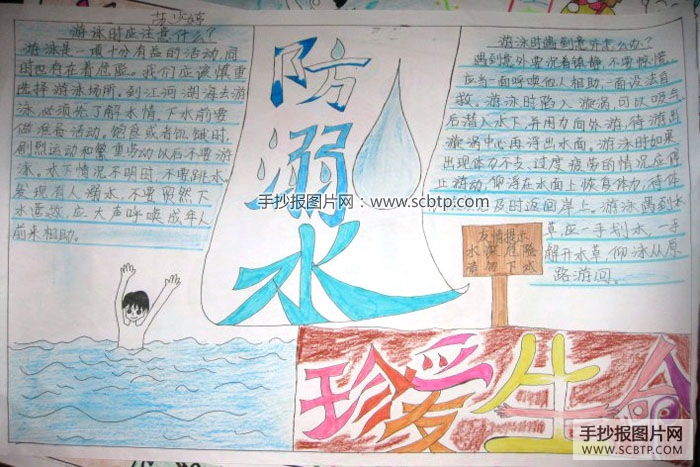 游泳时应注意什么?
游泳是一项十分有益的活动,同
时也存在着危险。我们应该慎重
选择游泳场所。到江河湖海去游
泳,必须先了解水情。下水前要
做准备活动。饱食或者饥饿时,
剧烈运动和繁重劳动以后不要游
泳。水下情况不明时,不要跳水。
发现有人溺水,不要贸然下
水营救,应大声呼唤成年人
前来相助。
防溺水
游泳时遇到意外怎么办?
遇到意外要沉着镇静,不要惊慌,
应当一面呼唤他人相助,一面设法自
救。游泳时陷入漩涡,可以吸气
后潜入水下,并用力向外游,待游出
漩涡中心再浮出水面。游泳时如果
出现体力不支、过度疲劳的情况应停
止游动,仰浮在水面上恢复体力,待体
及时返回岸上。游泳遇到水
草,应一手划水,一手
解开水草,仰泳从原
路游回。
友情提示
水深危险
请勿下水
珍爱生命
手抄报图片网:www.scbtp.com
手抄报图片网
WWW.SCBTP.COM